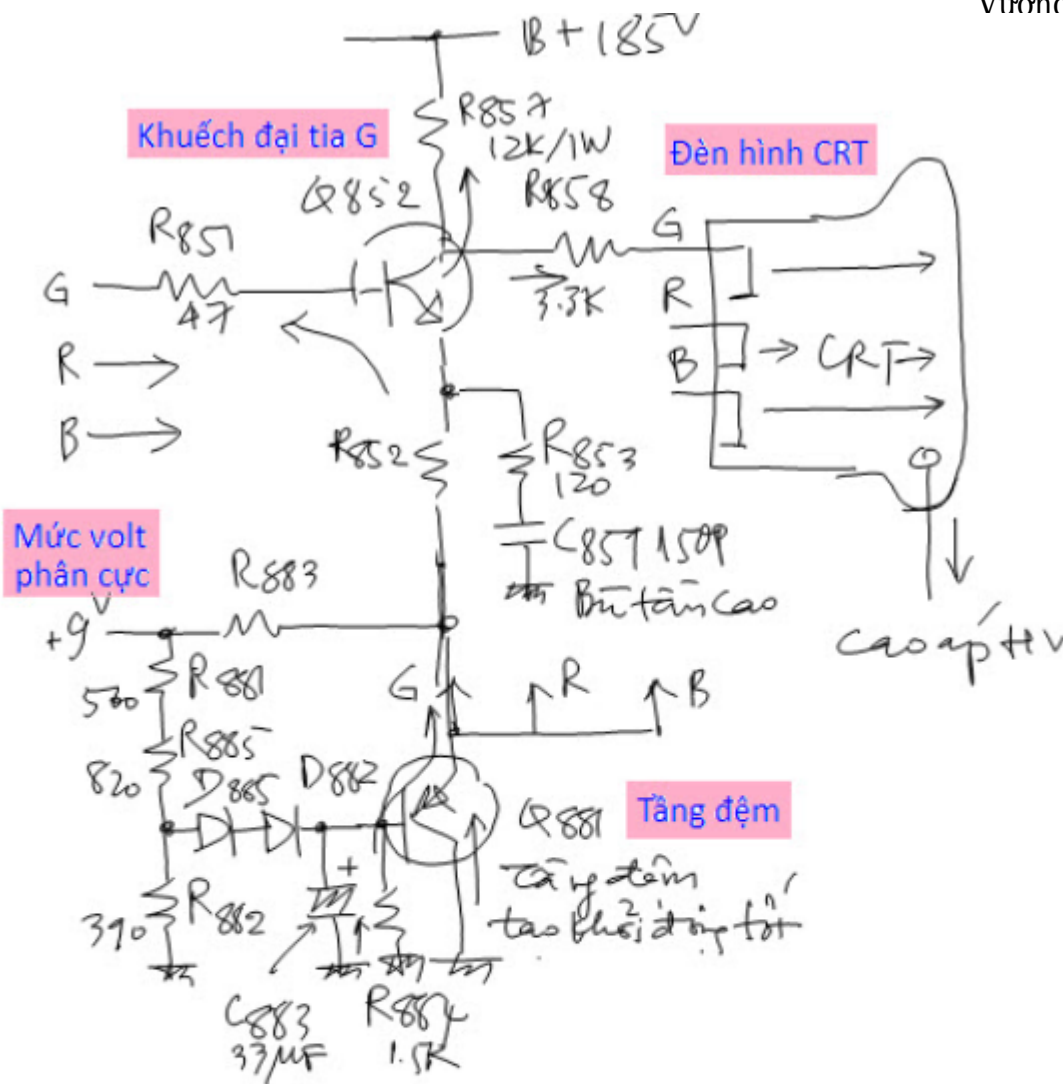 Vương
B+185V
R857
12K/1W
Khuếch đại tia G
Đèn hình CRT
Q852
R858
R851
G
G
3.3K
47
R
R
B
CRT
B
R852
R853
120
C851 150P
Bù tần cao
Mức volt
phân cực
R883
+9V
cao áp HV
R881
560
G
R
B
R885
820
D885
D882
Q881
Tầng đệm
Tầng đệm
tạo khởi động tốt
R882
390
C883
33µF
R884
1.5K
+